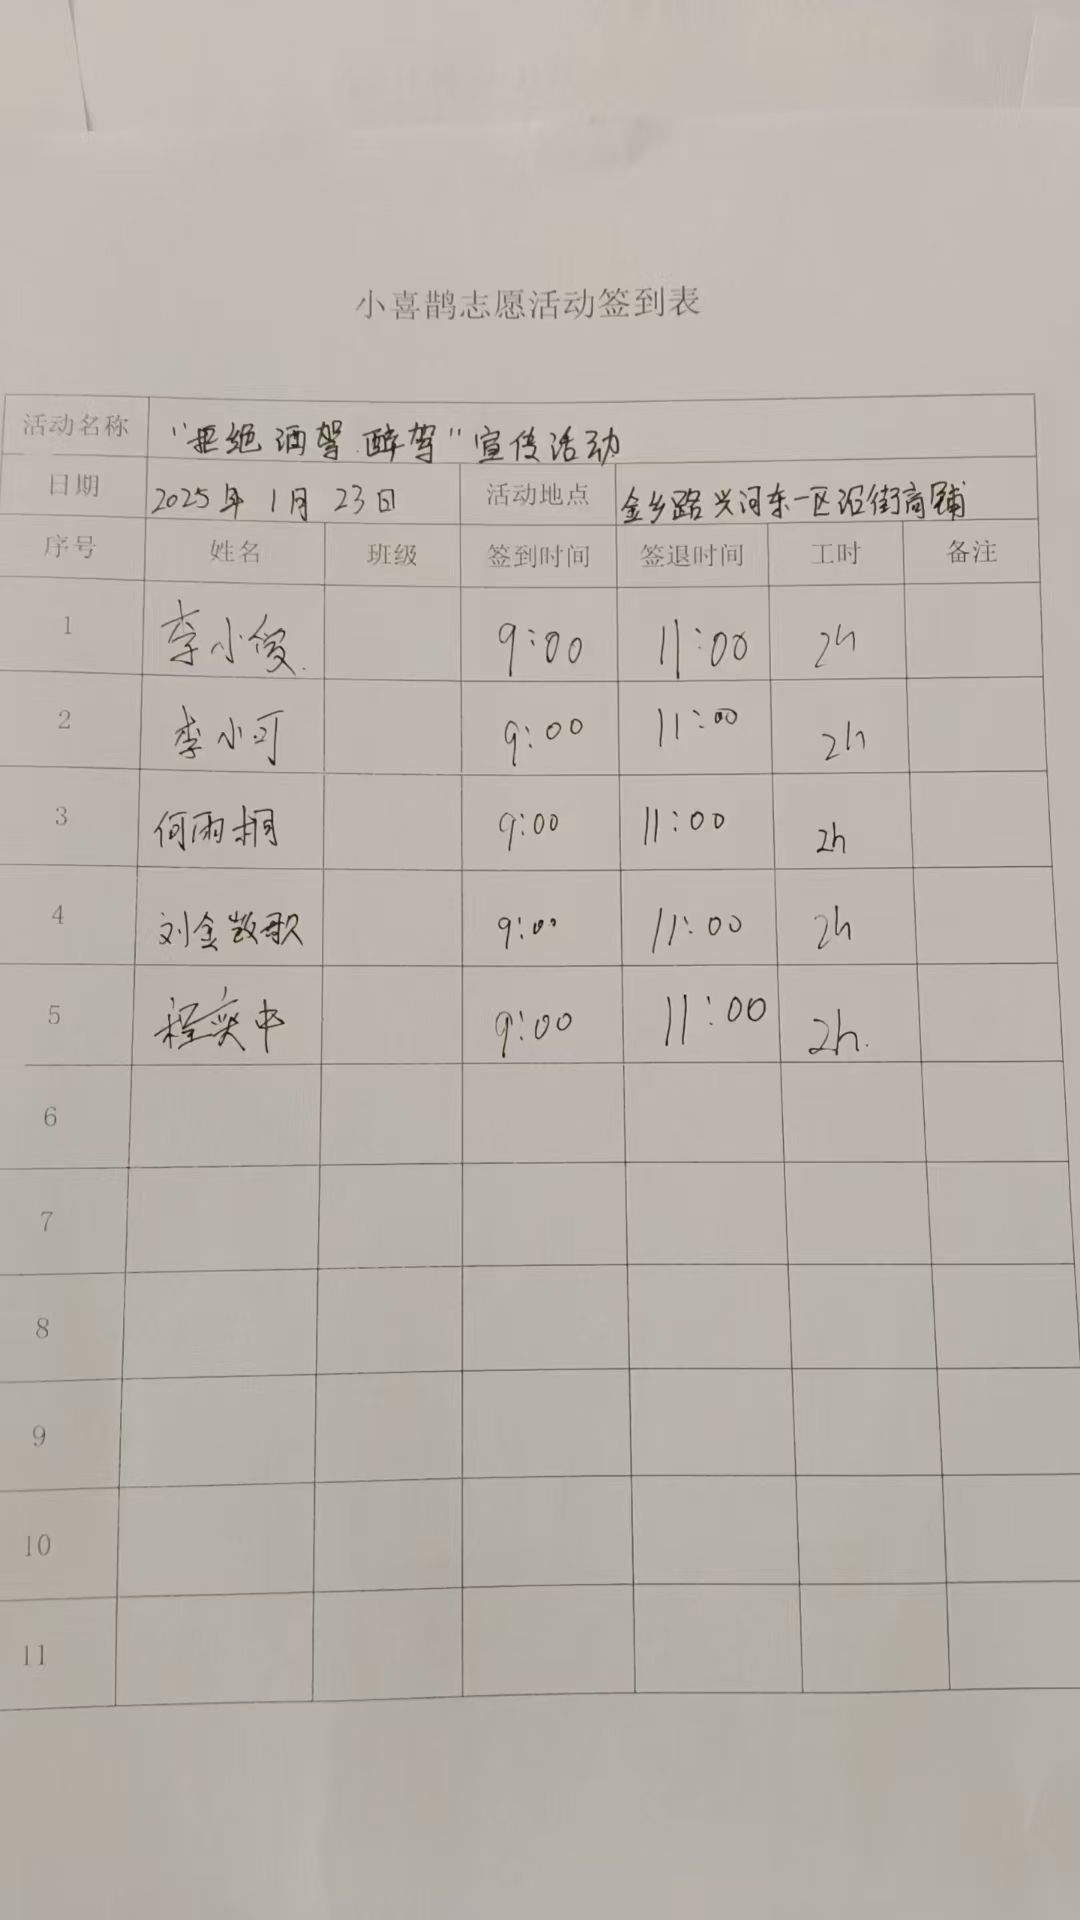 小喜鹊志愿活动签到表
活动名称 "拒绝酒驾醉驾"宣传活动
日期 2025年1月23日 活动地点 金乡路兴河东一区沿街商铺
序号 姓名 班级 签到时间 签退时间 工时 备注
1 李小俊 9:00 11:00 2h
2 李小可 9:00 11:00 2h
3 何雨桐 9:00 11:00 2h
4 刘金 9:00 11:00 2h
5 程奕中 9:00 11:00 2h.
6
7
8
9
10
11